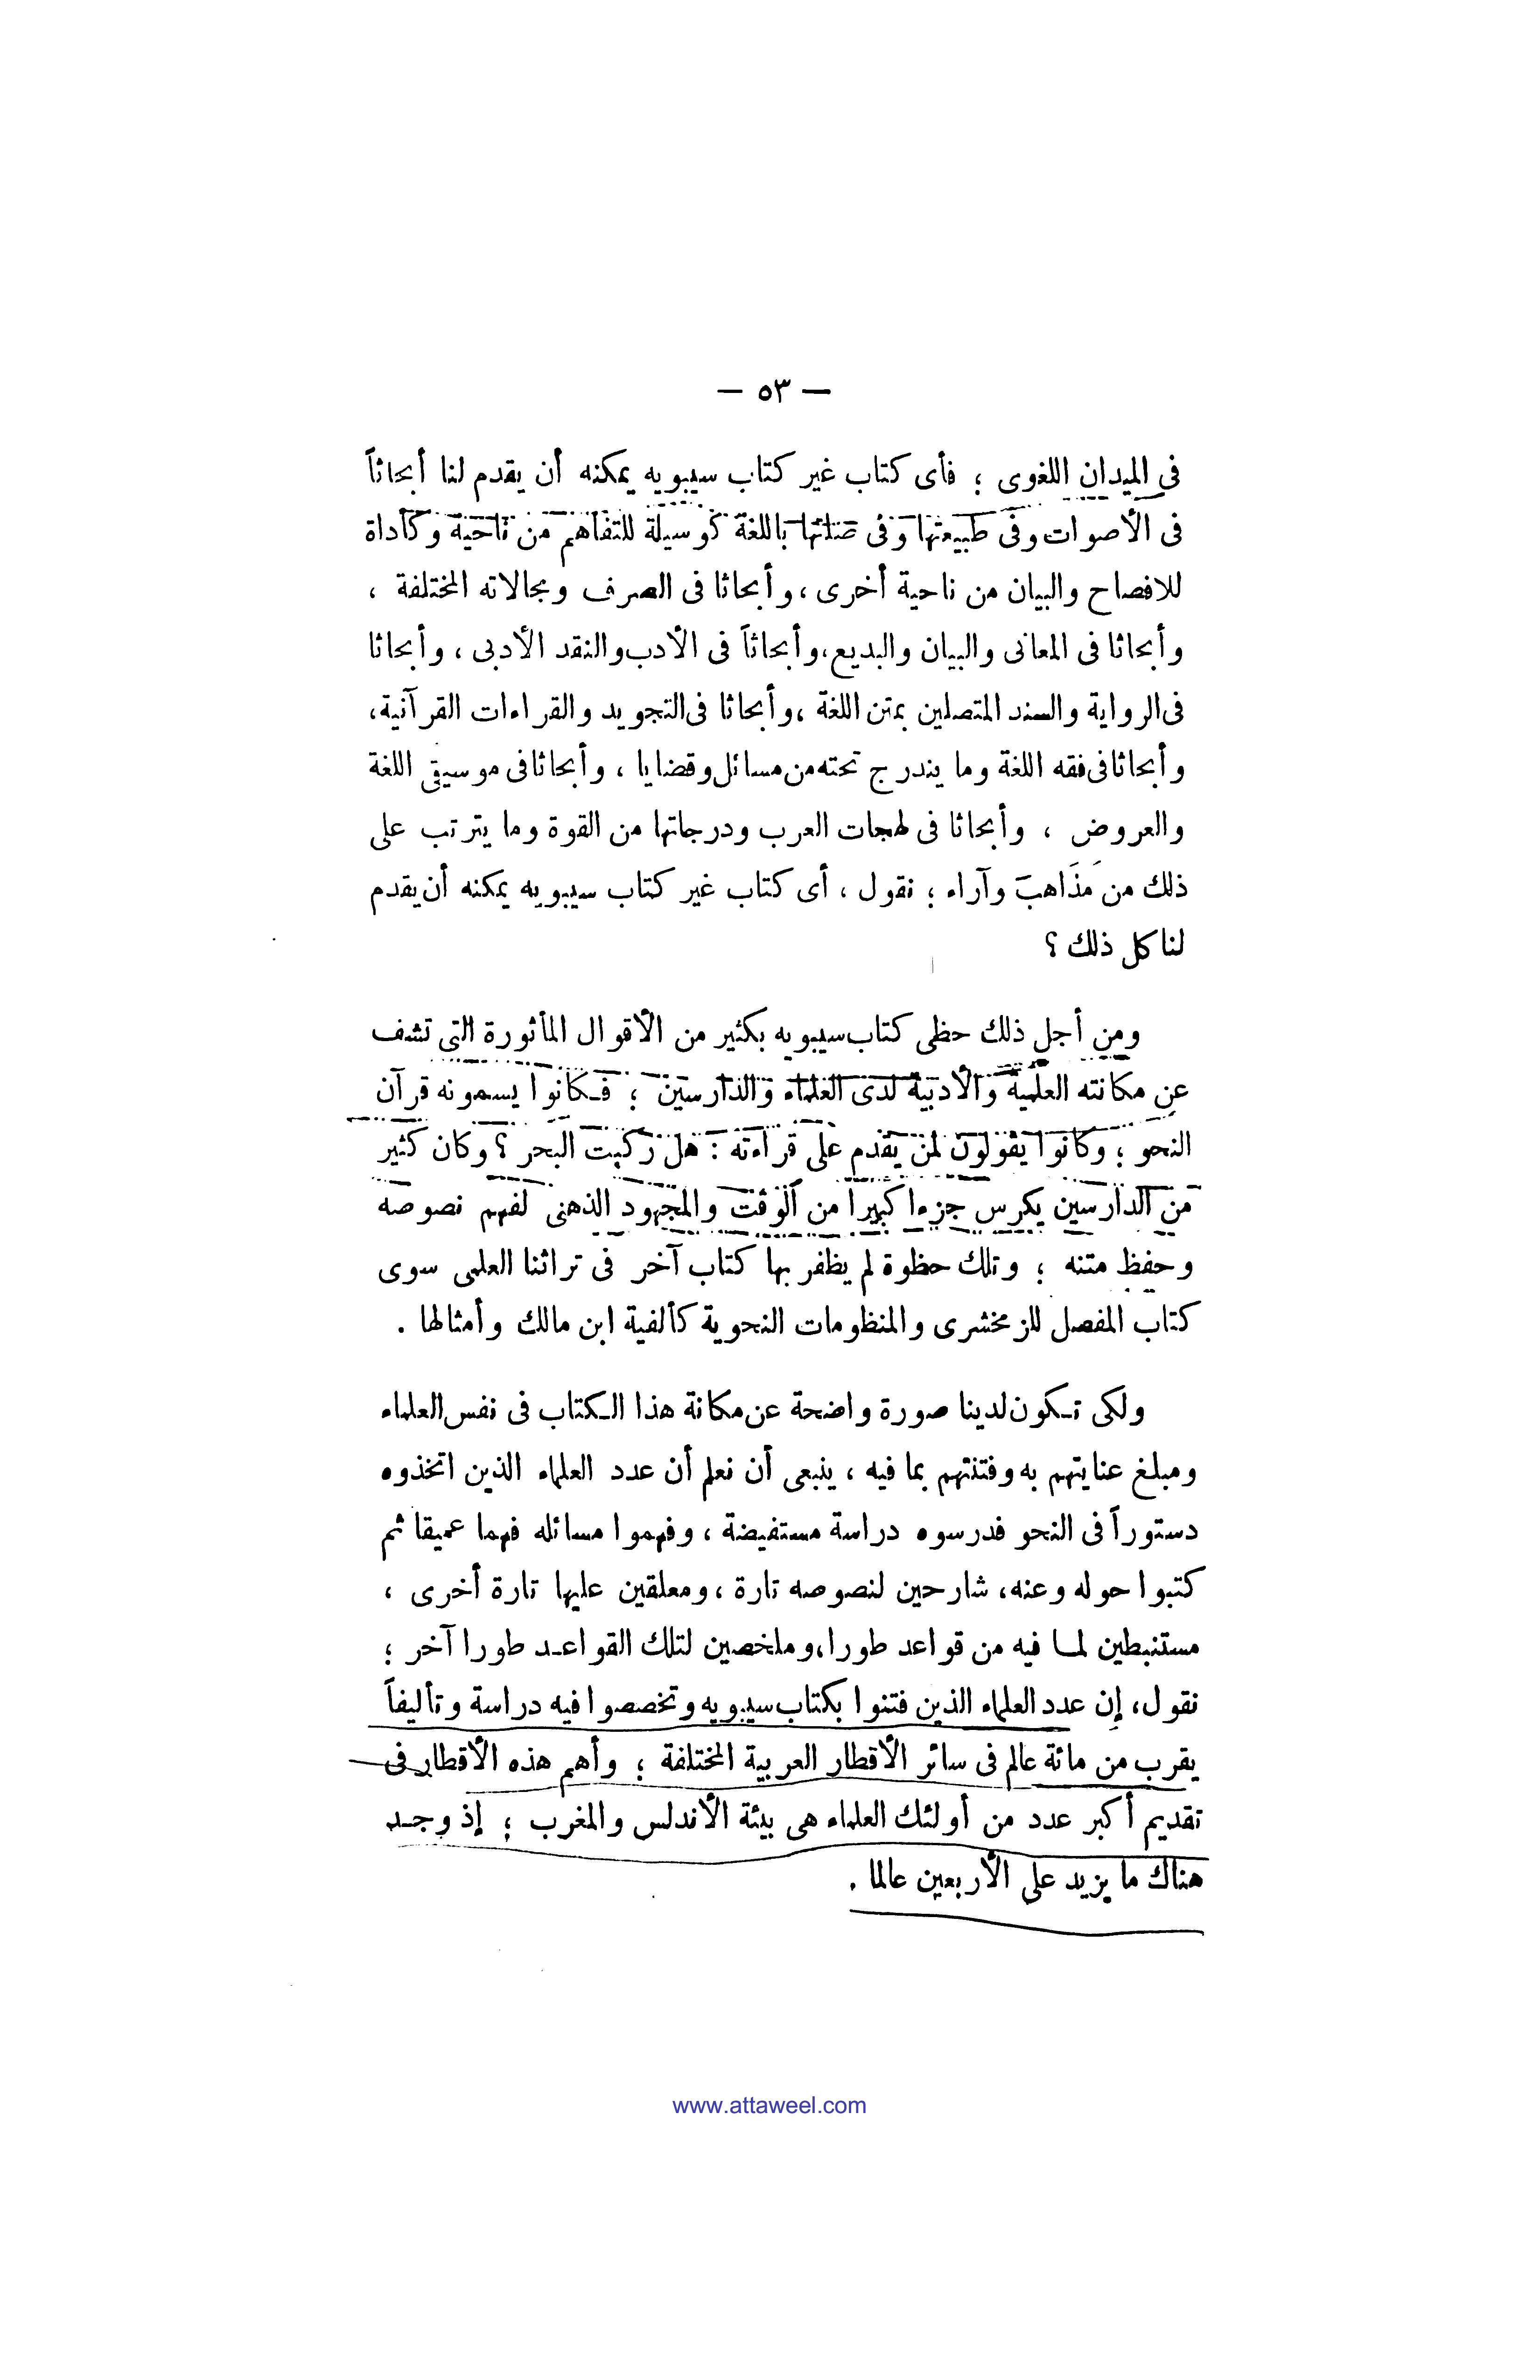 — ٥٣ —
فى الميدان اللغوى ؛ فأى كتاب غير كتاب سيبويه يمكنه أن يقدم لنا أبحاثاً
فى الأصوات وفى طبيعتها وفى صلتها باللغة كوسيلة للتفاهم من ناحية وكأداة
للافصاح والبيان من ناحية أخرى ، وأبحاثا فى الصرف ومجالاته المختلفة ،
وأبحاثا فى المعانى والبيان والبديع، وأبحاثاً فى الأدب والنقد الأدبى ، وأبحاثا
فى الرواية والسند المتصلين بمتن اللغة ، وأبحاثا فى التجويد والقراءات القرآنية،
وأبحاثا فى فقه اللغة وما يندرج تحته من مسائل وقضايا ، وأبحاثا فى موسيقى اللغة
والعروض ، وأبحاثا فى لهجات العرب ودرجاتها من القوة وما يترتب على
ذلك من مذاهب وآراء ؛ نقول ، أى كتاب غير كتاب سيبويه يمكنه أن يقدم
لنا كل ذلك ؟
ومن أجل ذلك حظى كتاب سيبويه بكثير من الأقوال المأثورة التى تشف
عن مكانته العلمية والأدبية لدى العلماء والدارسين ؛ فكانوا يسمونه قرآن
النحو ؛ وكانوا يقولون لمن يقدم على قراءته : هل ركبت البحر ؟ وكان كثير
من الدارسين يكرس جزءا كبيرا من الوقت والمجهود الذهنى لفهم نصوصه
وحفظ متنه ؛ وتلك حظوة لم يظفر بها كتاب آخر فى تراثنا العلمى سوى
كتاب المفصل للزمخشرى والمنظومات النحوية كألفية ابن مالك وأمثالها .
ولكى تكون لدينا صورة واضحة عن مكانة هذا الكتاب فى نفس العلماء
ومبلغ عنايتهم به وفتنتهم بما فيه ، ينبغى أن نعلم أن عدد العلماء الذين اتخذوه
دستوراً فى النحو فدرسوه دراسة مستفيضة ، وفهموا مسائله فهما عميقا ثم
كتبوا حوله وعنه، شارحين لنصوصه تارة ، ومعلقين عليها تارة أخرى ،
مستنبطين لما فيه من قواعد طورا، وملخصين لتلك القواعد طورا آخر ؛
نقول، إن عدد العلماء الذين فتنوا بكتاب سيبويه وتخصصوا فيه دراسة وتأليفاً
يقرب من مائة عالم فى سائر الأقطار العربية المختلفة ؛ وأهم هذه الأقطار فى
تقديم أكبر عدد من أولئك العلماء هى بيئة الأندلس والمغرب ؛ إذ وجد
هناك ما يزيد على الأربعين عالما .
www.attaweel.com